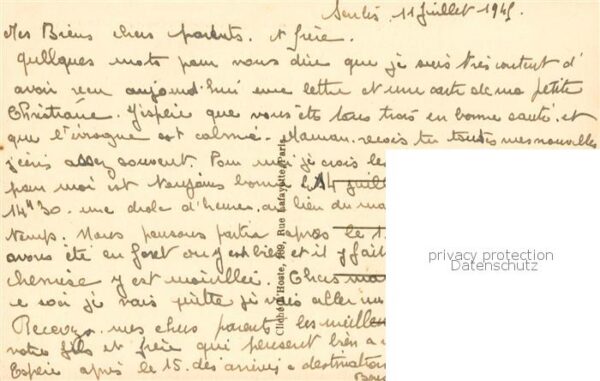 Senlis, 11 Juillet 1945
Mes Biens chers parents. et frère.
quelques mots pour vous dire que je suis très content d'
avoir reçu aujourd'hui une lettre et une carte de ma petite
Christiane. J'espère que vous êtes tous trois en bonne santé. et
que l'ivrogne est calmé. Maman. reçois tu toutes mes nouvelles
j'écris assez souvent. Pour je crois le
pour moi est toujours bonne. le 14 juill
14h30. une drole d'heure. au lieu du ma
temps. Nous pensons partir après le 1
avons été en foret ou y est bien et il y fait
chemise y est mouillée. Chers ma
ce soir je vais je vais aller
Recevez. mes chers parents les meille
votre fils et frère qui pensent bien a
Espère après le 15. dès arrivée a destination
Clichés d'Hoste, 169, Rue Lafayette, Paris
privacy protection
Datenschutz